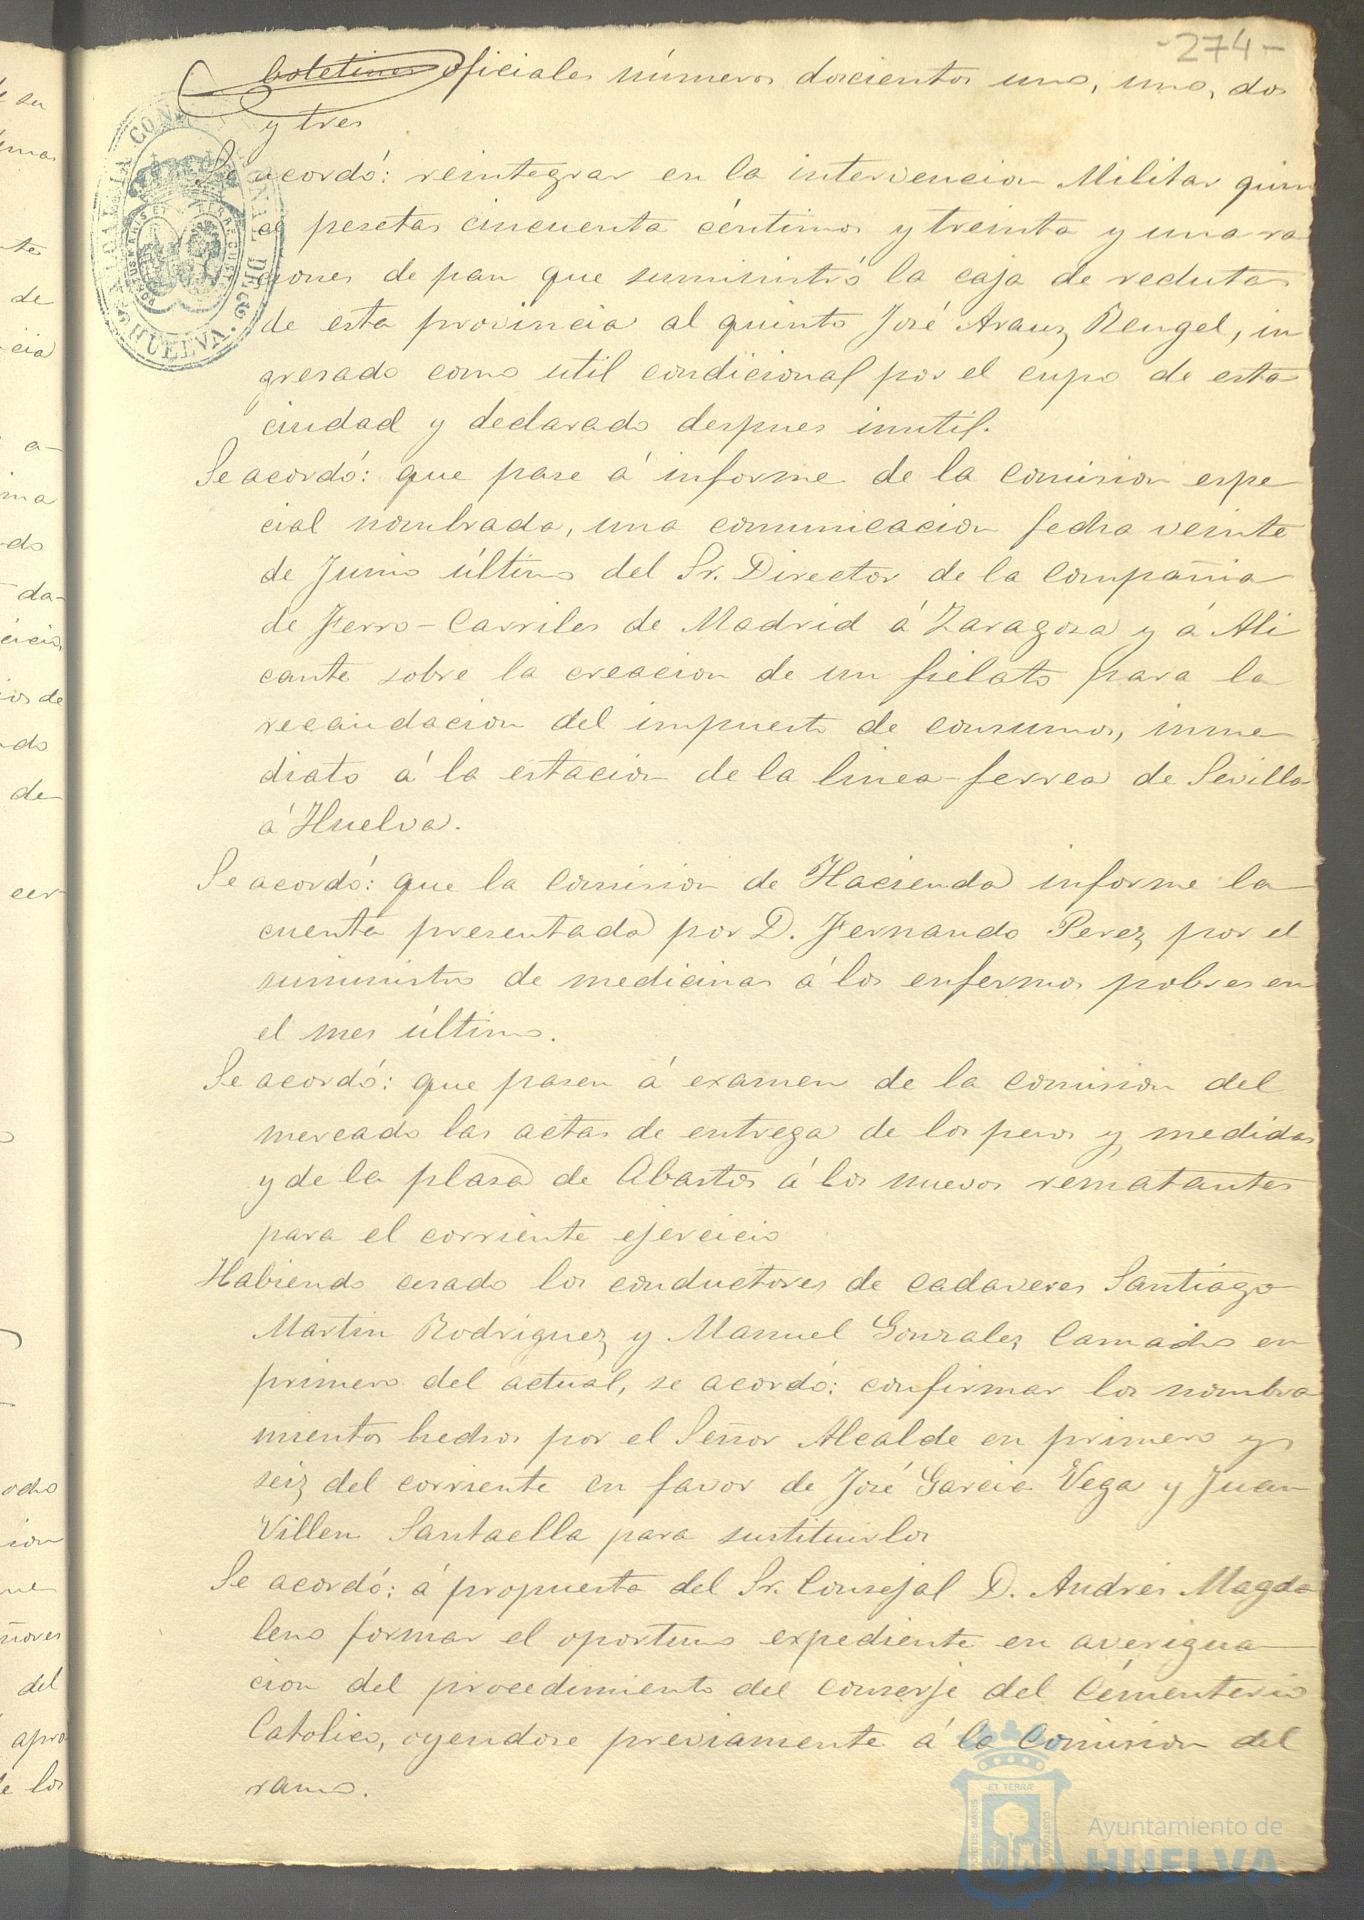 -274-
boletines oficiales números doscientos uno, uno, dos
y tres
Se acordó: reintegrar en la intervencion Militar quin
ce pesetas cincuenta céntimos y treinta y una ra
ciones de pan que suministró la caja de reclutas
de esta provincia al quinto José Arauz Rengel, in
gresado como util condicional por el cupo de esta
ciudad y declarado despues inutil.
Se acordó: que pase á informe de la comision espe
cial nombrada, una comunicacion fecha veinte
de Junio último del Sr. Director de la Compañia
de Ferro-Carriles de Madrid á Zaragoza y á Ali
cante sobre la creacion de un fielato para la
recaudacion del impuesto de consumos, inme
diato á la estacion de la linea-ferrea de Sevilla
á Huelva.
Se acordó: que la comision de Hacienda informe la
cuenta presentada por D. Fernando Perez por el
suministro de medicinas á los enfermos pobres en
el mes último.
Se acordó: que pasen á examen de la comision del
mercado las actas de entrega de los pesos y medidas
y de la plasa de Abastos á los nuevos rematantes
para el corriente ejercicio
Habiendo cesado los conductores de cadaveres Santiago
Martin Rodriguez y Manuel Gonzalez Camacho en
primero del actual, se acordó: confirmar los nombra
mientos hechos por el Señor Alcalde en primero y
seiz del corriente en favor de José Garcia Vega y Juan
Villen Santaella para sustituirlos
Se acordó: á propuesta del Sr. Consejal D. Andres Magda
leno formar el oportuno expediente en averigua
cion del procedimiento del conserje del Cementerio
Catolico, oyendose previamente á la Comision del
ramo.
ALCALDIA CONSTITUCIONAL DE HUELVA.
Ayuntamiento de
HUELVA